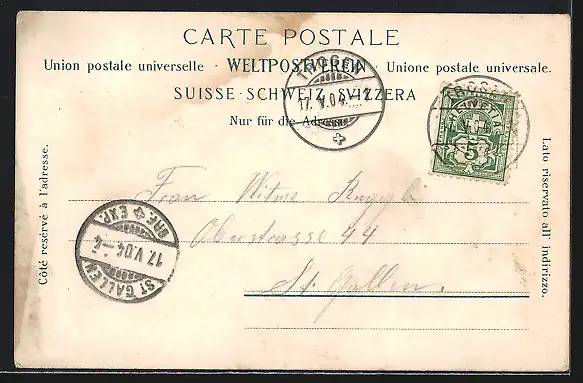 CARTE POSTALE
Union postale universelle · WELTPOSTVEREIN · Unione postale universale.
SUISSE · SCHWEIZ · SVIZZERA
Nur für die Adresse
TROGEN
17. V. 04.
HELVETIA
5
Côté reservé à l'adresse.
Lato riservato all' indirizzo.
Frau Witwe
Oberstrasse 44
St. Gallen.
ST GALLEN
17. V. 04. - 4
BRF. EXP.